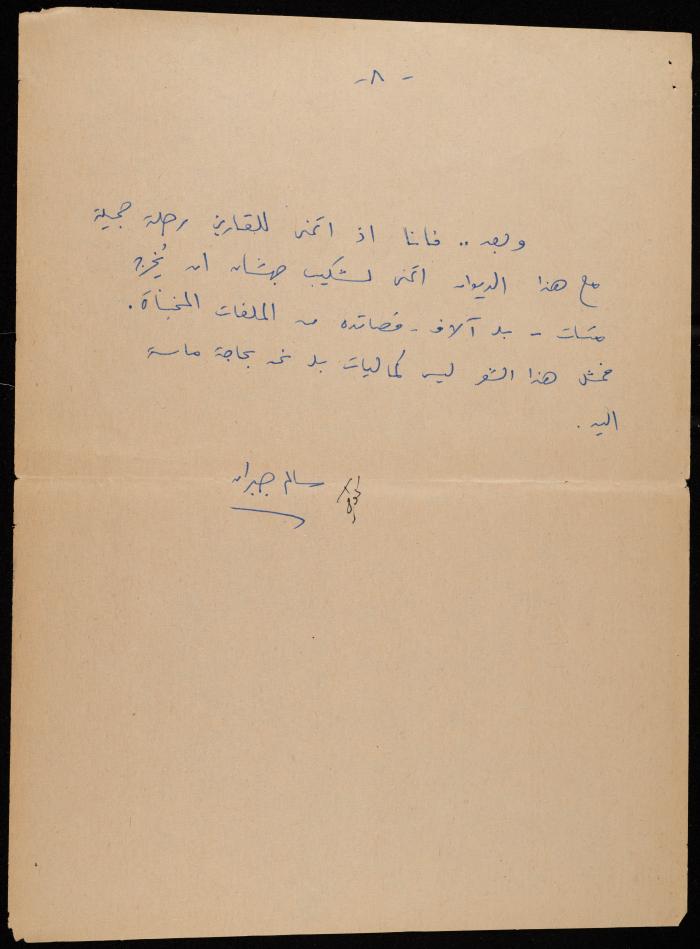 - ٨ -
وبعد .. فانا اذ اتمنى للقارئ رحلة جميلة
مع هذا الديوان اتمنى لشكيب جهشان ان يُخرج
مئات - بل آلاف - قصائده من الملفات المخبأة .
فمثل هذا الشعر ليس كماليات بل نحن بحاجة ماسة
اليه .
سالم جبران